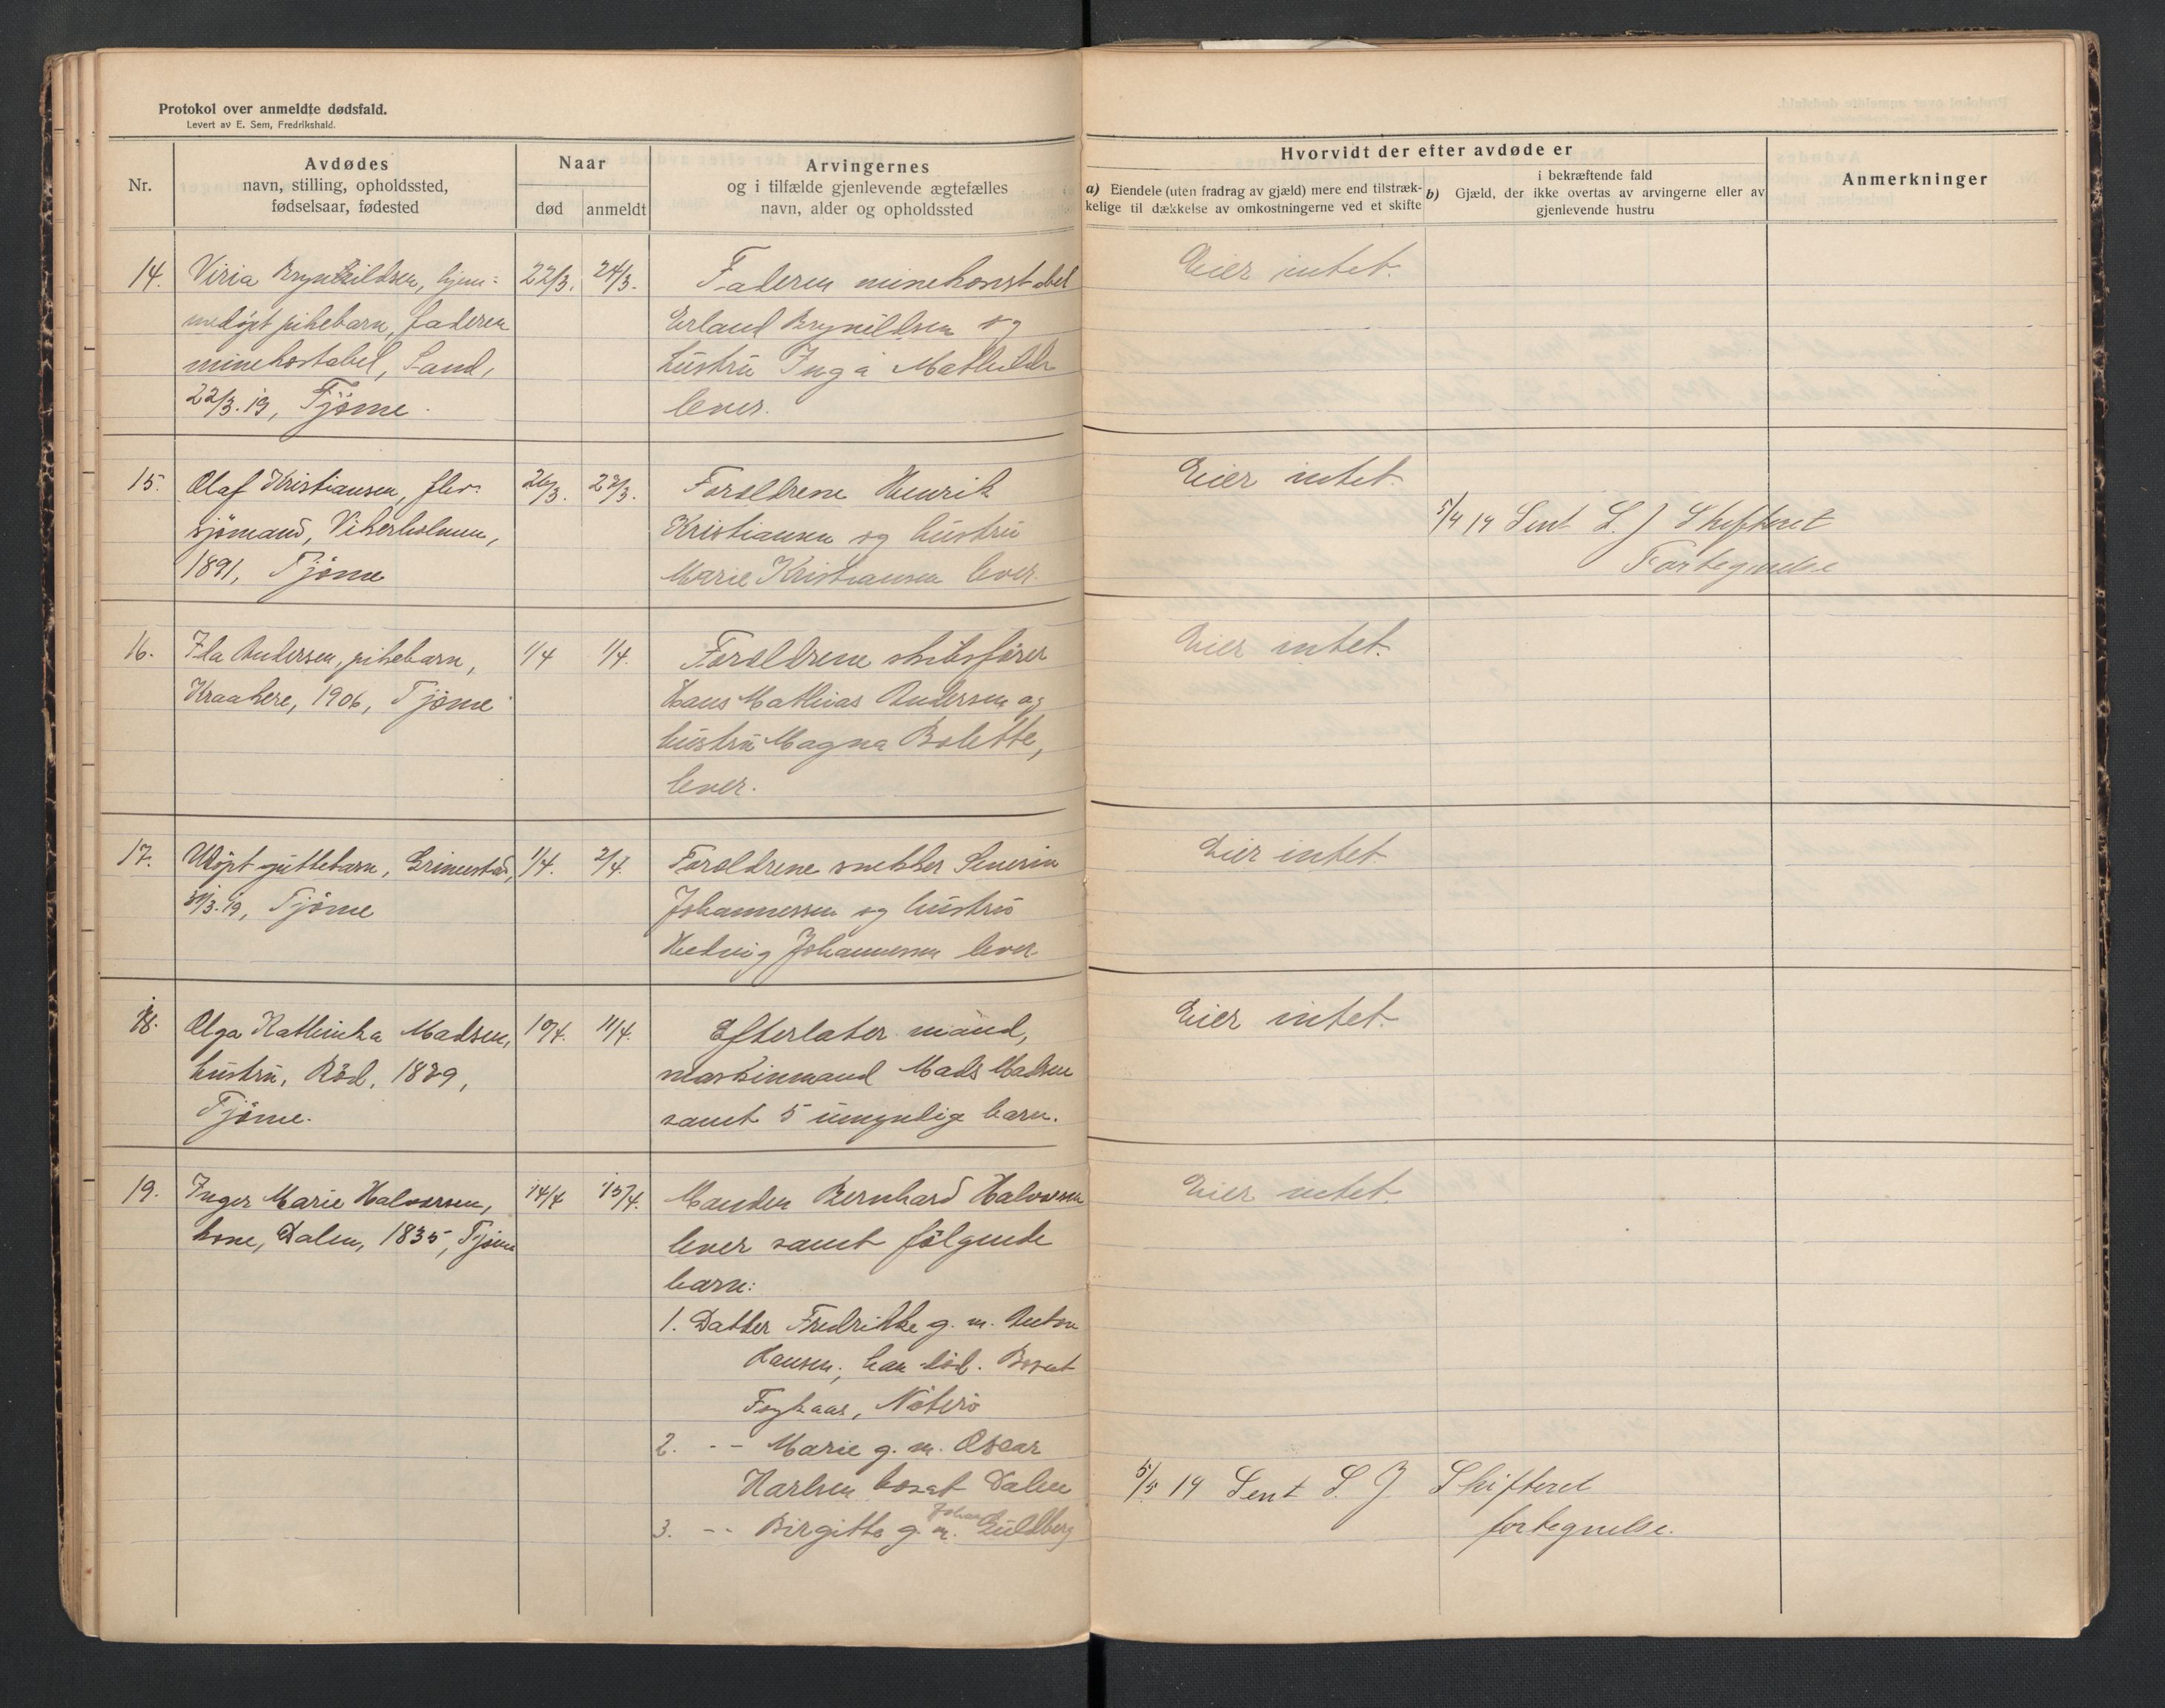 Protokol over anmeldte dødsfald.
Levert av E. Sem, Fredrikshald.
Nr.
Avdødes
navn, stilling, opholdssted,
fødselsaar, fødested
Naar
død
anmeldt
Arvingernes
og i tilfælde gjenlevende ægtefælles
navn, alder og opholdssted
Hvorvidt der efter avdøde er
a) Eiendele (uten fradrag av gjæld) mere end tilstræk-
kelige til dækkelse av omkostningerne ved et skifte
i bekræftende fald
b) Gjæld, der ikke overtas av arvingerne eller av
gjenlevende hustru
Anmerkninger
14.
Viria Brynhildsen, hjem-
medöpt pikebarn, faderen
minekostabel, Sand,
22/3.19, Tjöme.
22/3.
24/3.
Faderen minekonstabel
Erland Brynildsen og
hustru Inga Mathilde
lever.
Eier intet.
15.
Olaf Kristiansen,
sjömand, Vikerholmen,
1891, Tjöme
26/3.
Foreldrene Henrik
Kristiansen og hustru
Marie Kristiansen lever.
Eier intet.
5/4 19 Sent S. J Skifteret
Fortegnelse
16.
Ida Andersen, pikebarn,
Kraakere, 1906, Tjöme
1/4
1/4.
Foreldrene skibsförer
Hans Mathias Andersen og
hustru Magna Bolette,
lever.
Eier intet.
17.
Udöpt guttebarn, Grimestad,
31/3.19, Tjöme
1/4.
2/4.
Foreldrene snekker Severin
Johannessen og hustru
Hedvig Johannessen lever.
Eier intet.
18.
Olga Kathinka Madsen,
hustru, Röd, 1889,
Tjöme.
10/4.
11/4.
Efterlater mand,
maskinmand Mads Madsen
samt 5 umynlige barn.
Eier intet.
19.
Inger Marie Halvorsen,
kone, Dalen, 1835, Tjöme
14/4
15/4.
Manden Bernhard Halvorsen
lever samt fölgende
barn:
1. Datter Fredrikke g. m. Anton
Hansen, han död. Bosat
Föykaas, Nöterö
2. -- Marie g. m. Oscar
Karlsen bosat Dalen
3. -- Birgitte g. m. Johan Guldberg
Eier intet.
5/5 19 Sent S. J Skifteret
fortegnelse.